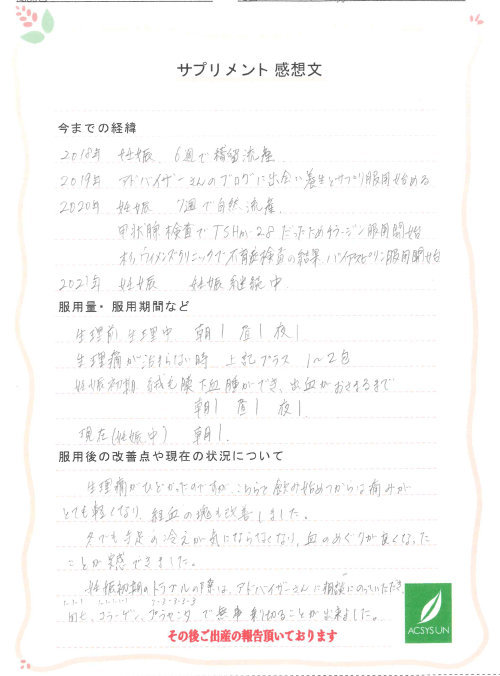 サプリメント 感想文
今までの経緯
2018年 妊娠 6週で稽留流産
2019年 アドバイザーさんのブログに出会い養生とサプリ服用始める
2020年 妊娠 7週で自然流産
甲状腺検査でTSHが2.8だったためチラージン服用開始
ウィメンズクリニックで不育症検査の結果バイアスピリン服用開始
2021年 妊娠 妊娠継続中
服用量・服用期間など
生理前 生理中 朝1 昼1 夜1
生理痛が治まらない時 上記プラス 1〜2包
妊娠初期 絨毛膜下血腫ができ、出血がおさまるまで
朝1 昼1 夜1
現在(妊娠中) 朝1.
服用後の改善点や現在の状況について
生理痛がひどかったのですが、こちらを飲み始めてからは痛みが
とても軽くなり、経血の塊も改善しました。
冬でも手足の冷えが気にならなくなり、血のめぐりが良くなった
ことが実感できました。
妊娠初期のトラブルの際は、アドバイザーさんに相談にのっていただき
田七、コラーゲン、プラセンタで無事乗り切ることが出来ました。
その後ご出産の報告頂いております
ACSYSUN